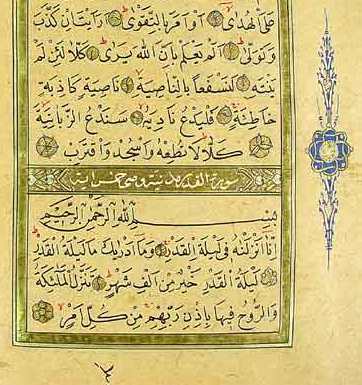 عَلَى الْهُدٰى اَوْ اَمَرَ بِالتَّقْوٰى اَرَاَيْتَ اِنْ كَذَّبَ
وَتَوَلّٰى اَلَمْ يَعْلَمْ بِاَنَّ اللّٰهَ يَرٰى كَلَّا لَئِنْ لَمْ
يَنْتَهِ لَنَسْفَعًا بِالنَّاصِيَةِ نَاصِيَةٍ كَاذِبَةٍ
خَاطِئَةٍ فَلْيَدْعُ نَادِيَهُ سَنَدْعُ الزَّبَانِيَةَ
كَلَّا لَا تُطِعْهُ وَاسْجُدْ وَاقْتَرِبْ
سورة القدر مدنية وهي خمس اية
بِسْمِ اللّٰهِ الرَّحْمٰنِ الرَّحِيمِ
اِنَّا اَنْزَلْنَاهُ فِى لَيْلَةِ الْقَدْرِ وَمَا اَدْرٰيكَ مَا لَيْلَةُ الْقَدْرِ
لَيْلَةُ الْقَدْرِ خَيْرٌ مِنْ اَلْفِ شَهْرٍ تَنَزَّلُ الْمَلٰئِكَةُ
وَالرُّوحُ فِيهَا بِاِذْنِ رَبِّهِمْ مِنْ كُلِّ اَمْرٍ